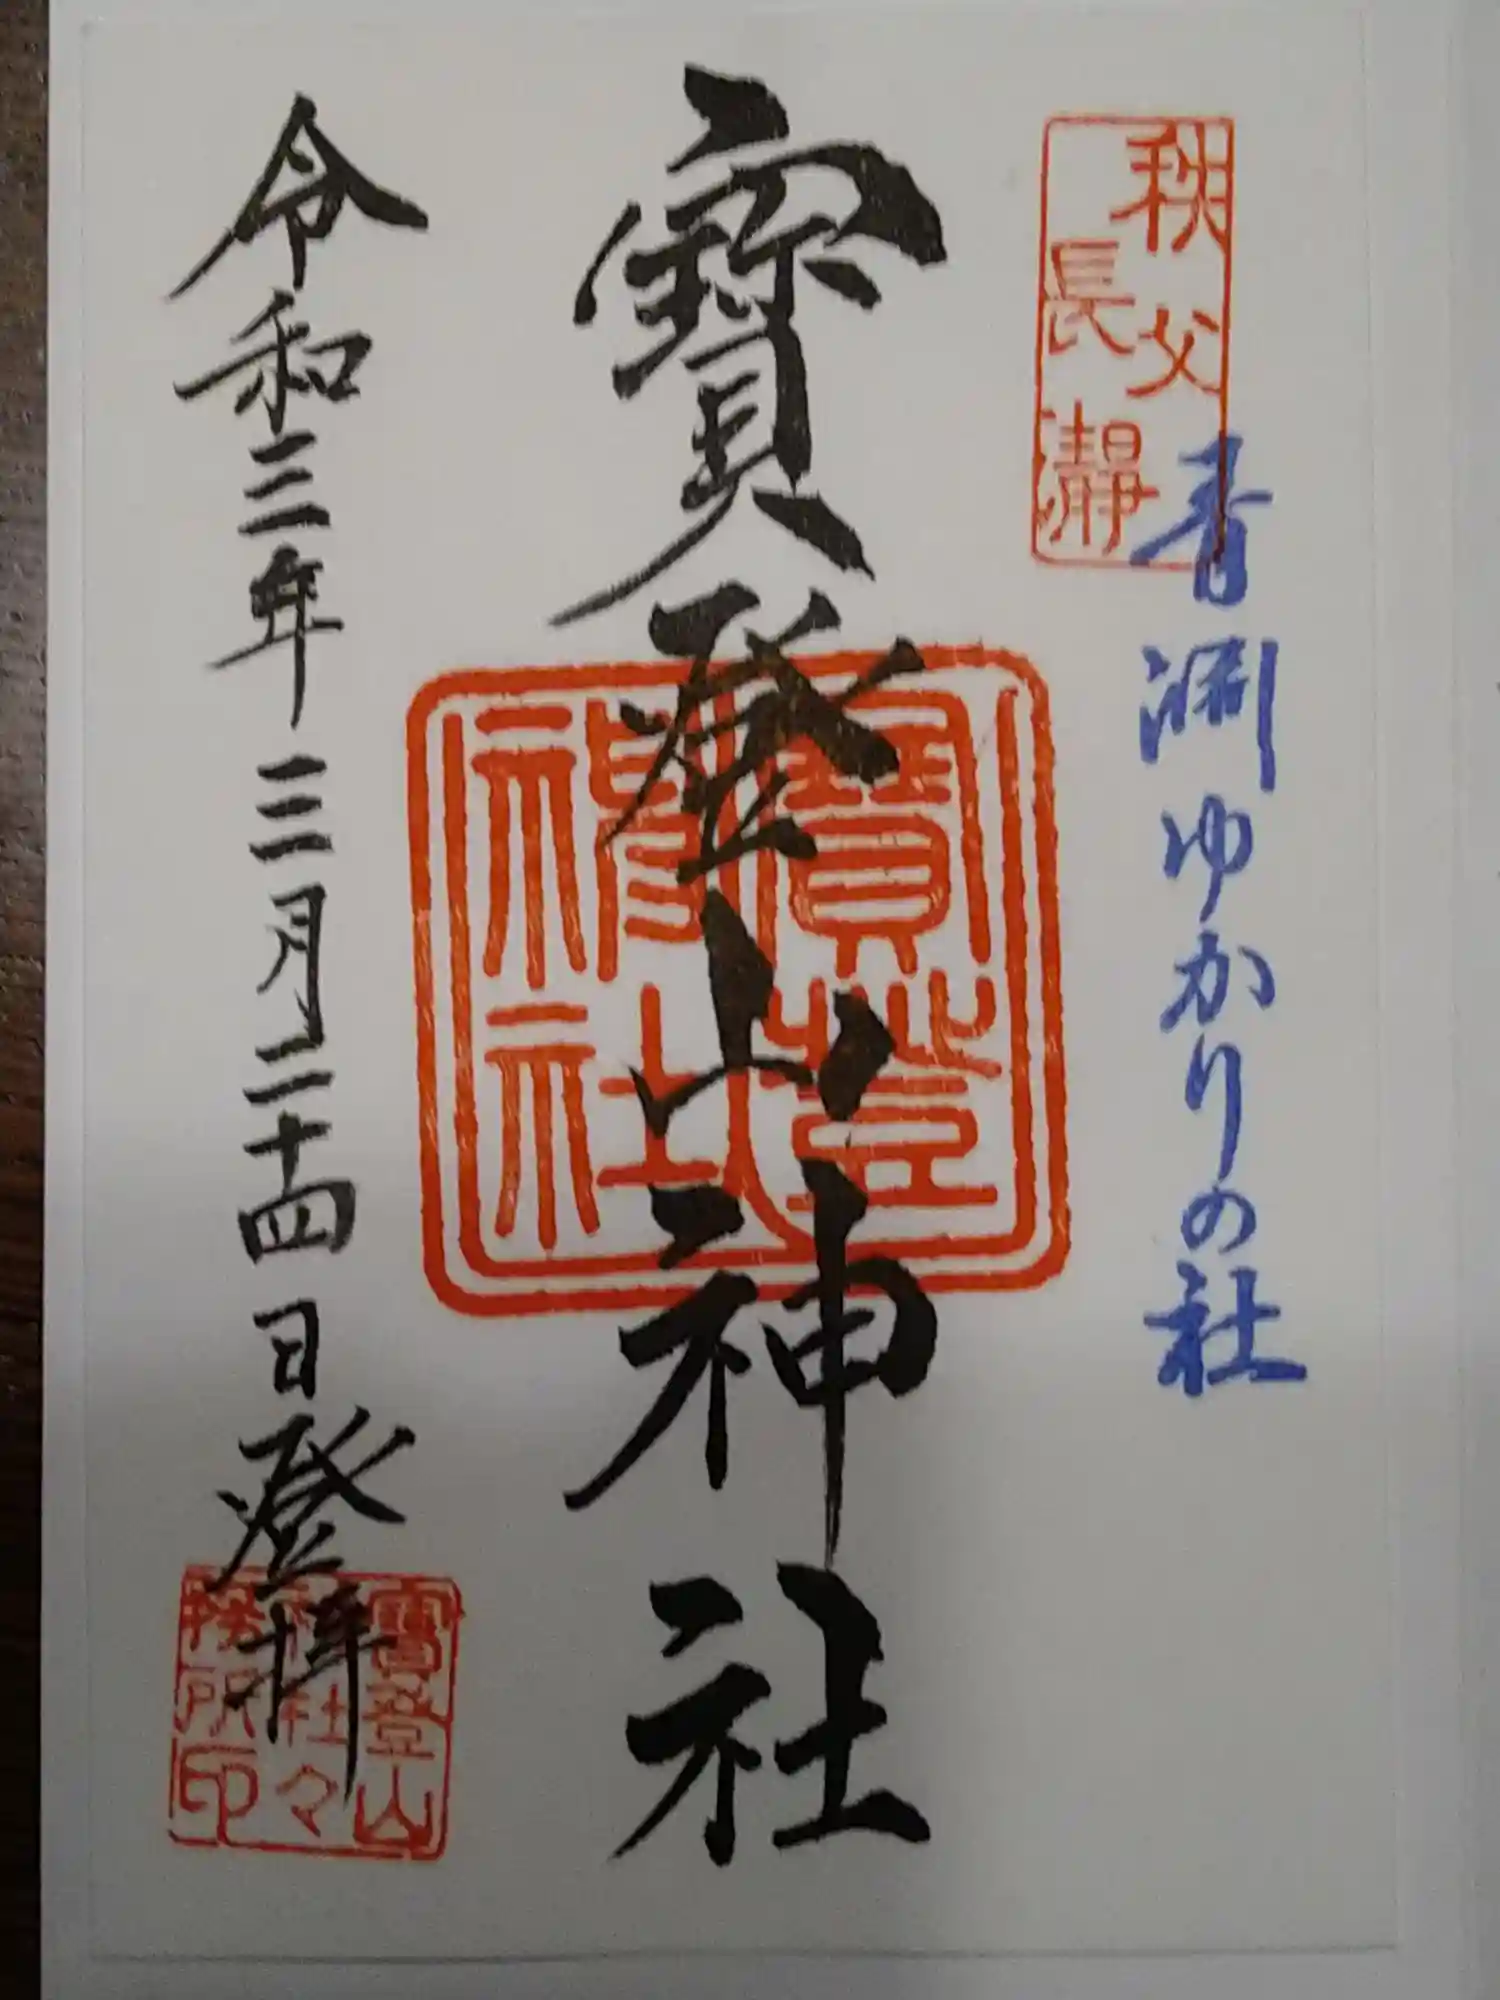 秩父
長瀞
青淵ゆかりの社
寳登山神社
寳登
神社
令和三年三月二十四日登拝
寳登山
神社々
務所印